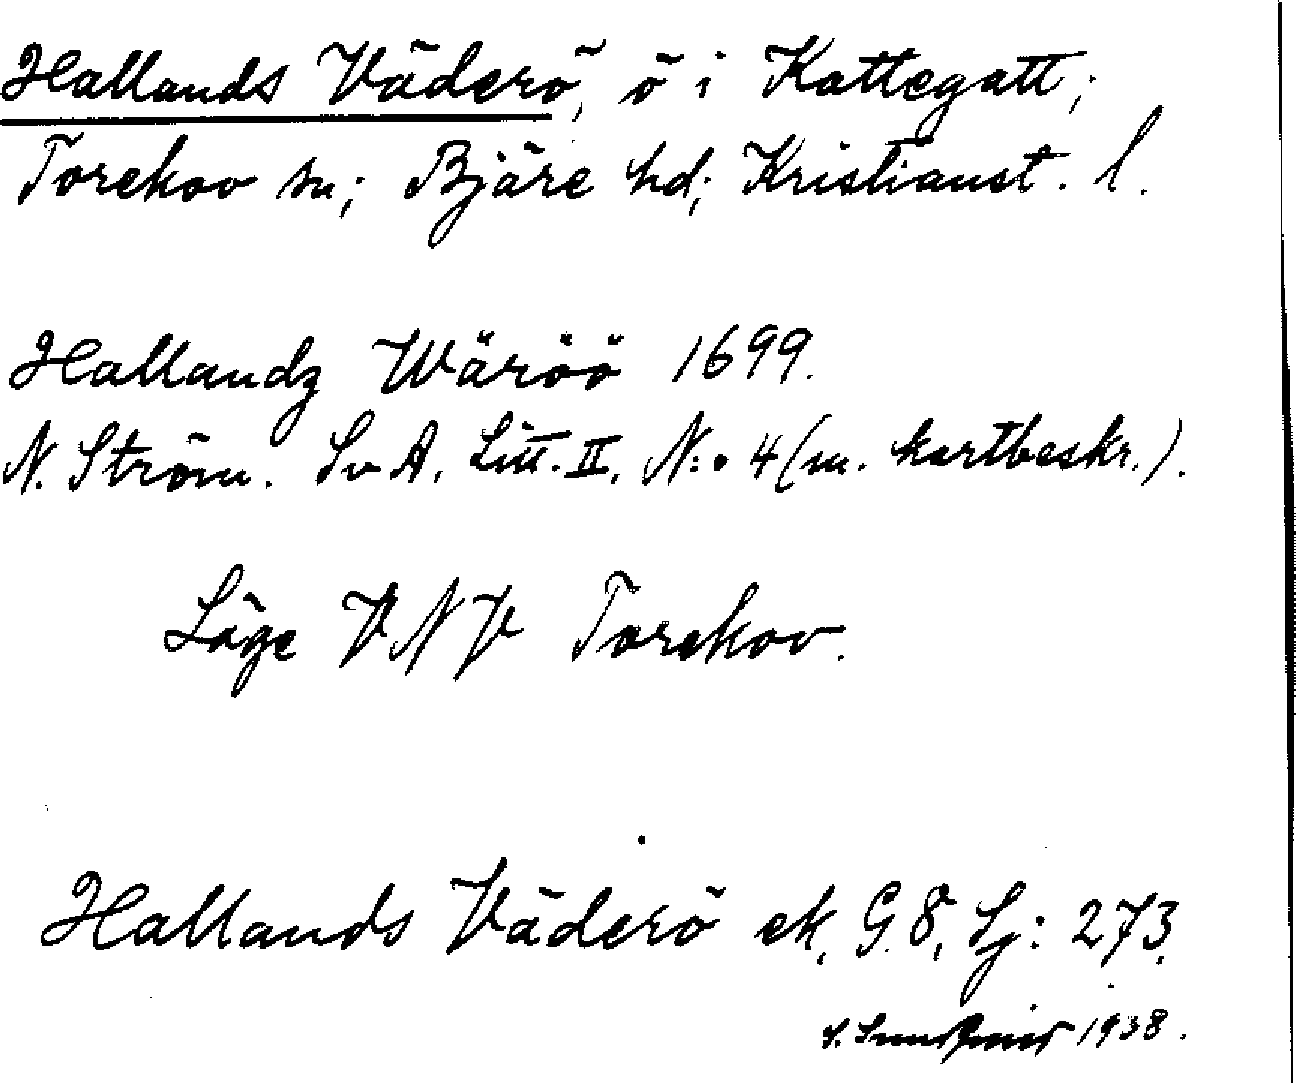 Hallands Väderö, ö i Kattegatt;
Torekov sn; Bjäre hd; Kristianst. l.
Hallandz Wäröö 1699.
N. Ström. Sv A. Litt. II. N:o 4 (m. kartbeskr.).
Läge VNV Torekov.
Hallands Väderö ek, G. 8, Sj: 273.
1938.